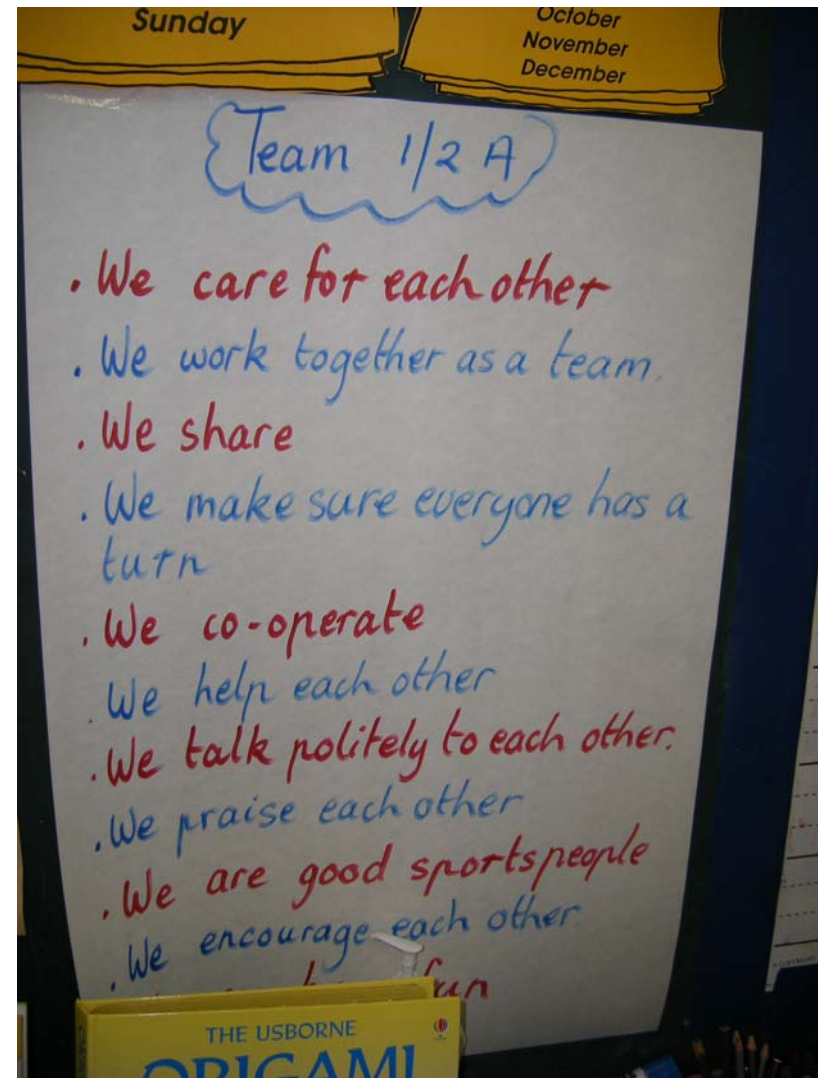 Sunday
October
November
December
Team 1/2 A
. We care for each other
. We work together as a team.
. We share
. We make sure everyone has a
turn
. We co-operate
. We help each other
. We talk politely to each other.
. We praise each other
. We are good sportspeople
. We encourage each other
fun
THE USBORNE
ORIGAMI